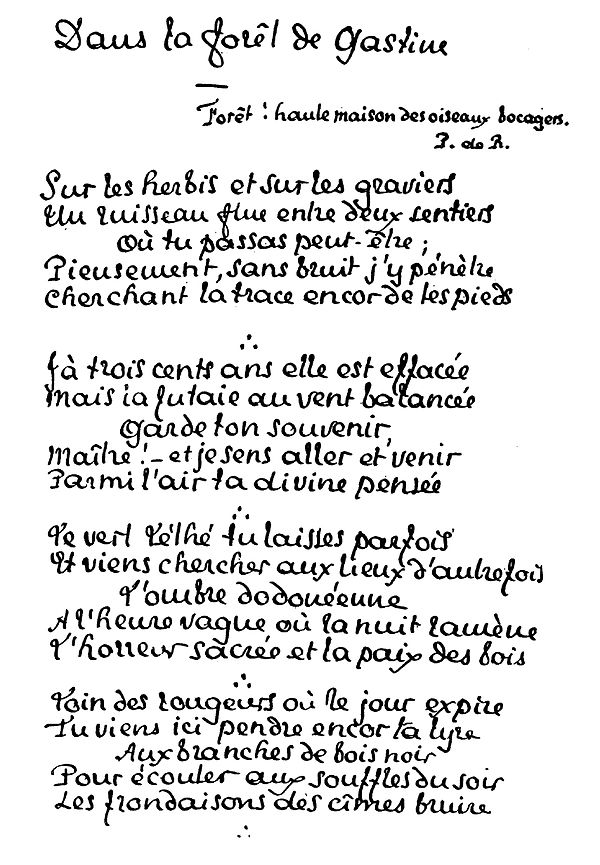 Dans la forêt de Gastine
Forêt ! haute maison des oiseaux bocagers.
P. de R.
Sur les herbis et sur les graviers
Un ruisseau flue entre deux sentiers
Où tu passas peut-être ;
Pieusement, sans bruit j'y pénètre
Cherchant la trace encor de tes pieds
∴
Jà trois cents ans elle est effacée
Mais la futaie au vent balancée
Garde ton souvenir,
Maître ! – et je sens aller et venir
Parmi l'air ta divine pensée
∴
Le vert Léthé tu laisses parfois
Et viens chercher aux lieux d'autrefois
L'ombre dodonéenne
A l'heure vague où la nuit ramène
L'horreur sacrée et la paix des bois
∴
Loin des rougeurs où le jour expire
Tu viens ici pendre encor ta lyre
Aux branches de bois noir
Pour écouter aux souffles du soir
Les frondaisons des cîmes bruire
∴